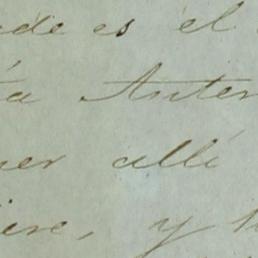 de es el
Anter
er allí
iere, y